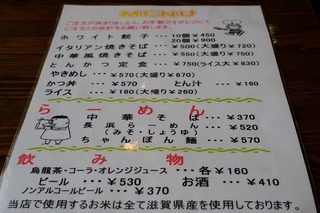 MENU
ご注文が決まりましたら、お手数ですがレジにて
ご注文とお会計をお願い致します。
ホワイト餃子 10個 ¥450
20個 ¥900
イタリアン焼きそば ¥500(大盛り ¥720)
中華風焼きそば ¥550(大盛り ¥750)
とんかつ定食 ¥750(ライス大 ¥830)
やきめし ¥570(大盛り ¥670)
かつ丼 ¥570 とん汁 ¥160
ライス ¥180(大盛り ¥260)
らーめん
中華そば ¥370
長浜らーめん ¥520
(みそ・しょうゆ)
ちゃんぽん麺 ¥570
飲み物
烏龍茶・コーラ・オレンジジュース 各 ¥160
ビール ¥530 お酒 ¥410
ノンアルコールビール ¥370
当店で使用するお米は全て滋賀県産を使用しております。